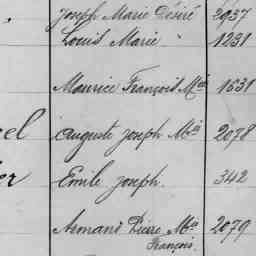 Joseph Marie Désiré 2937
Louis Marie 1231
Maurice François Mie 1631
el Auguste Joseph Mie 2078
er Emile Joseph. 342
Armand Pierre Mie 2079
François.